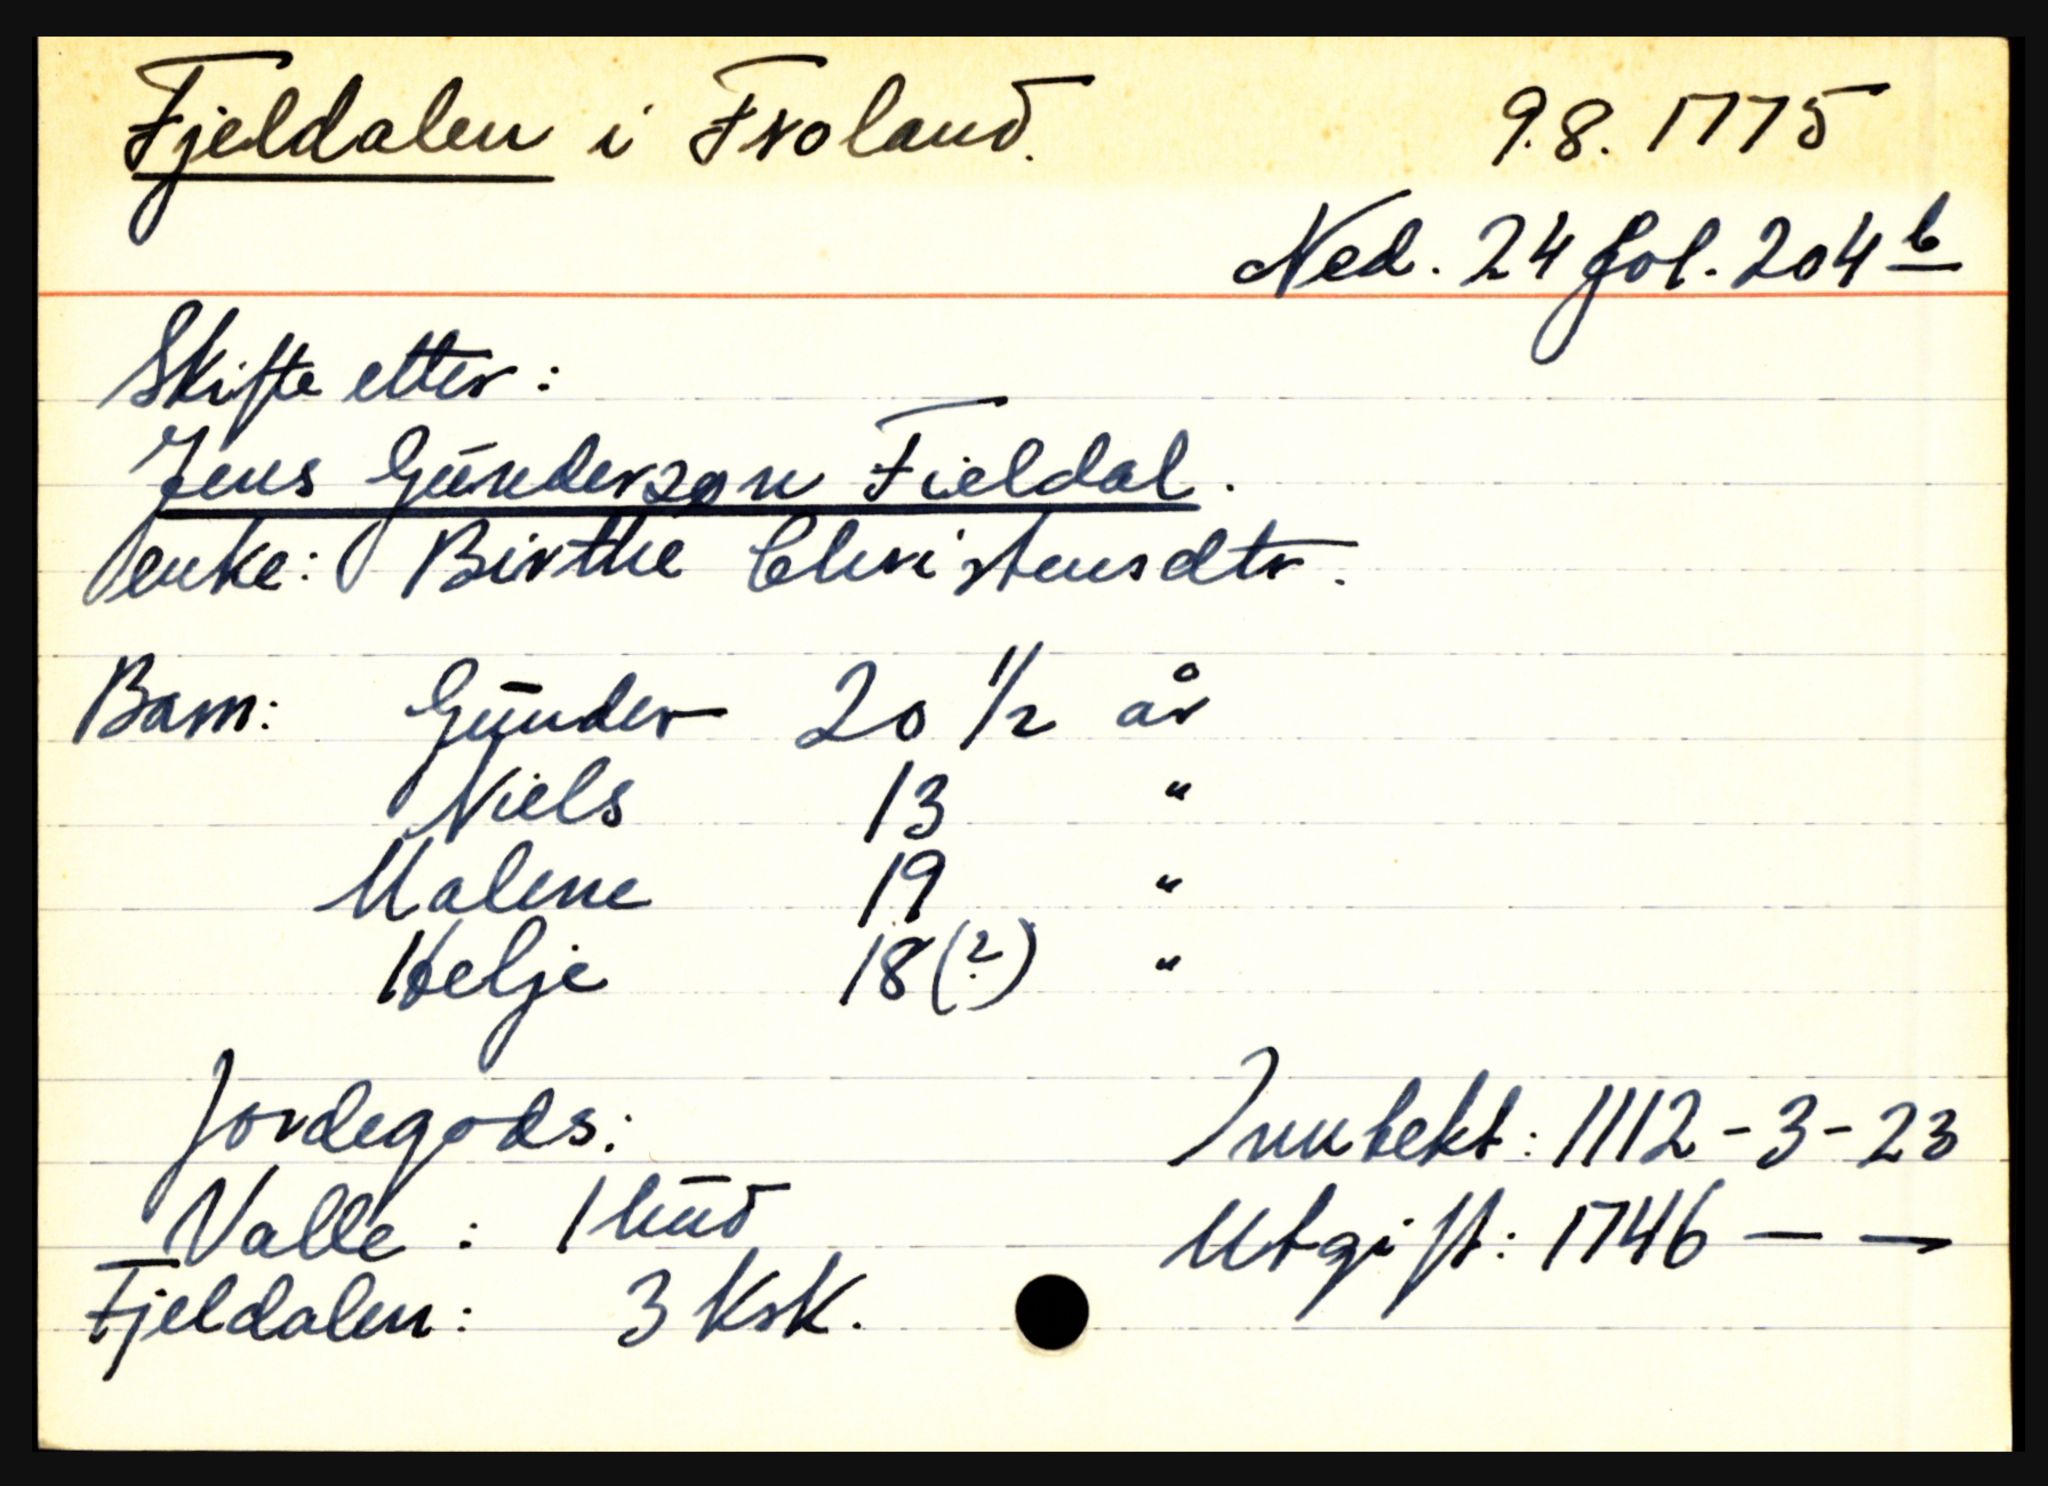 Fjeldalen i Froland. 9.8.1775
Ned. 24 fol. 204 b
Skifte etter:
Jens Gunderson Fieldal.
enke: Birthe Christensdtr.
Barn: Gunder 20 1/2 år
Niels 13 "
Malene 19 "
Helje 18(?) "
Jordegods: Inntekt: 1112-3-23
Valle: 1 hud Utgift: 1746 — —
Fjeldalen: 3 Ksk.